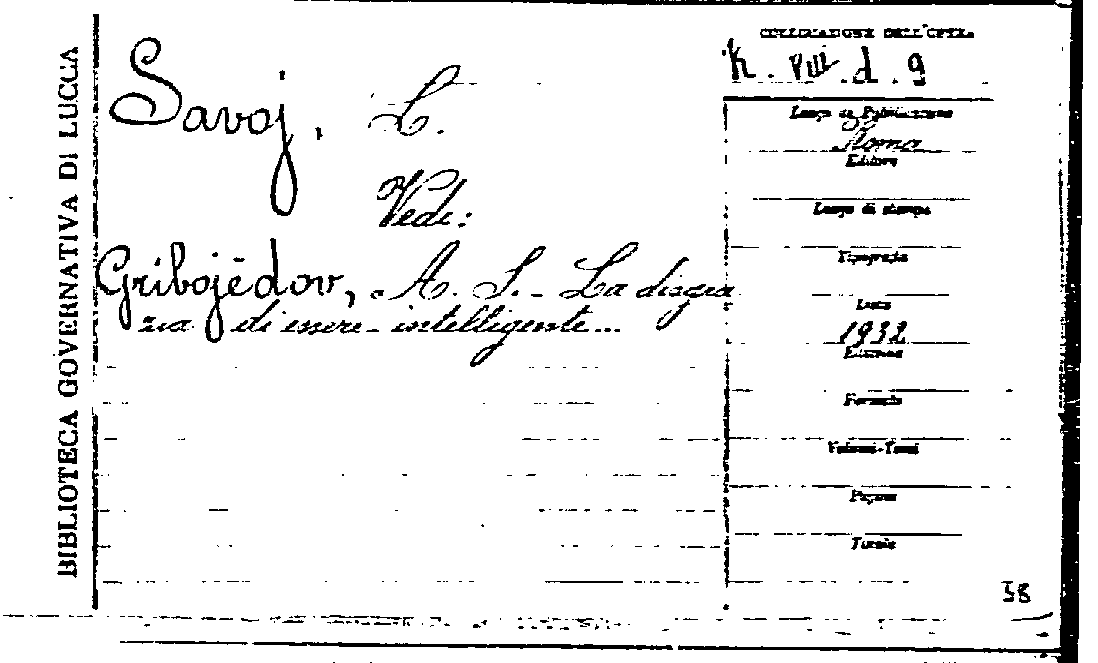 BIBLIOTECA GOVERNATIVA DI LUCCA
Savoj, L.
Vedi:
Gribojēdov, A. S. - La disgra
zia di essere intelligente...
COLLOCAZIONE DELL'OPERA
K. VIII. d. 9
Luogo di Pubblicazione
Roma
Editore
Luogo di stampa
Tipografia
Data
1932
Edizione
Formato
Volumi-Tomi
Pagine
Tavole
58